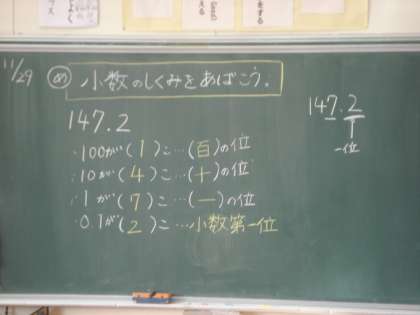 11/29 め 小数のしくみをあばこう。
147.2
・100が(1)こ…(百)の位
・10が(4)こ…(十)の位
・1が(7)こ…(一)の位
・0.1が(2)こ…小数第一位
147.2
一位